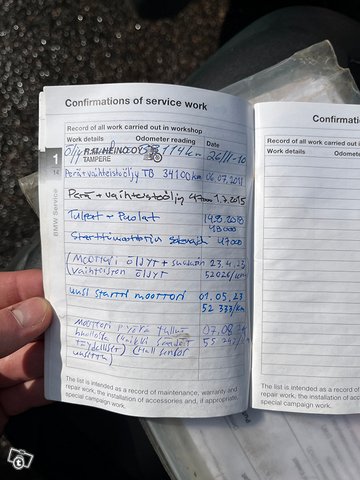 Confirmations of service work
Record of all work carried out in workshop
Work details Odometer reading Date
R.M. HEINO OY 114 km 26/11-10
TAMPERE
1
BMW Service
Perä+vaihteistoöljy TB 34100km 06.07.2011
Perä + vaihteistoöljy 47000 1.7.2015
Tulpat + Puolat 14.8.2018
48000
Starttimoottorin 47000
(Moottori öljyt + suodatin 23.4.23
(vaihteiston öljyt 52026/km)
uusi startti moottori 01.05.23
52 333/km)
Moottori pyörä 07.08.24
huollettu (kaikki 55 242/km)
(Hall sensor
uusittu)
The list is intended as a record of maintenance, warranty and
repair work, the installation of accessories and, if appropriate,
special campaign work.
Confirmati
Record of all work carried out
Work details Odome
The list is intended as a record
repair work, the installation of ac
special campaign work.